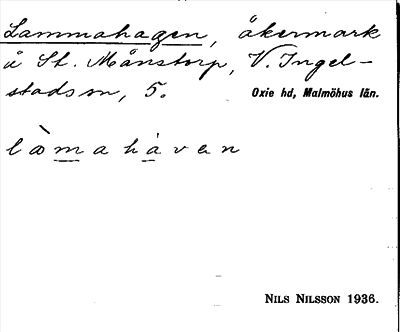 Lammahagen, åkermark
å St. Månstorp, V. Ingel-
stads sn, 5. Oxie hd, Malmöhus län.
lòmahávan
NILS NILSSON 1936.